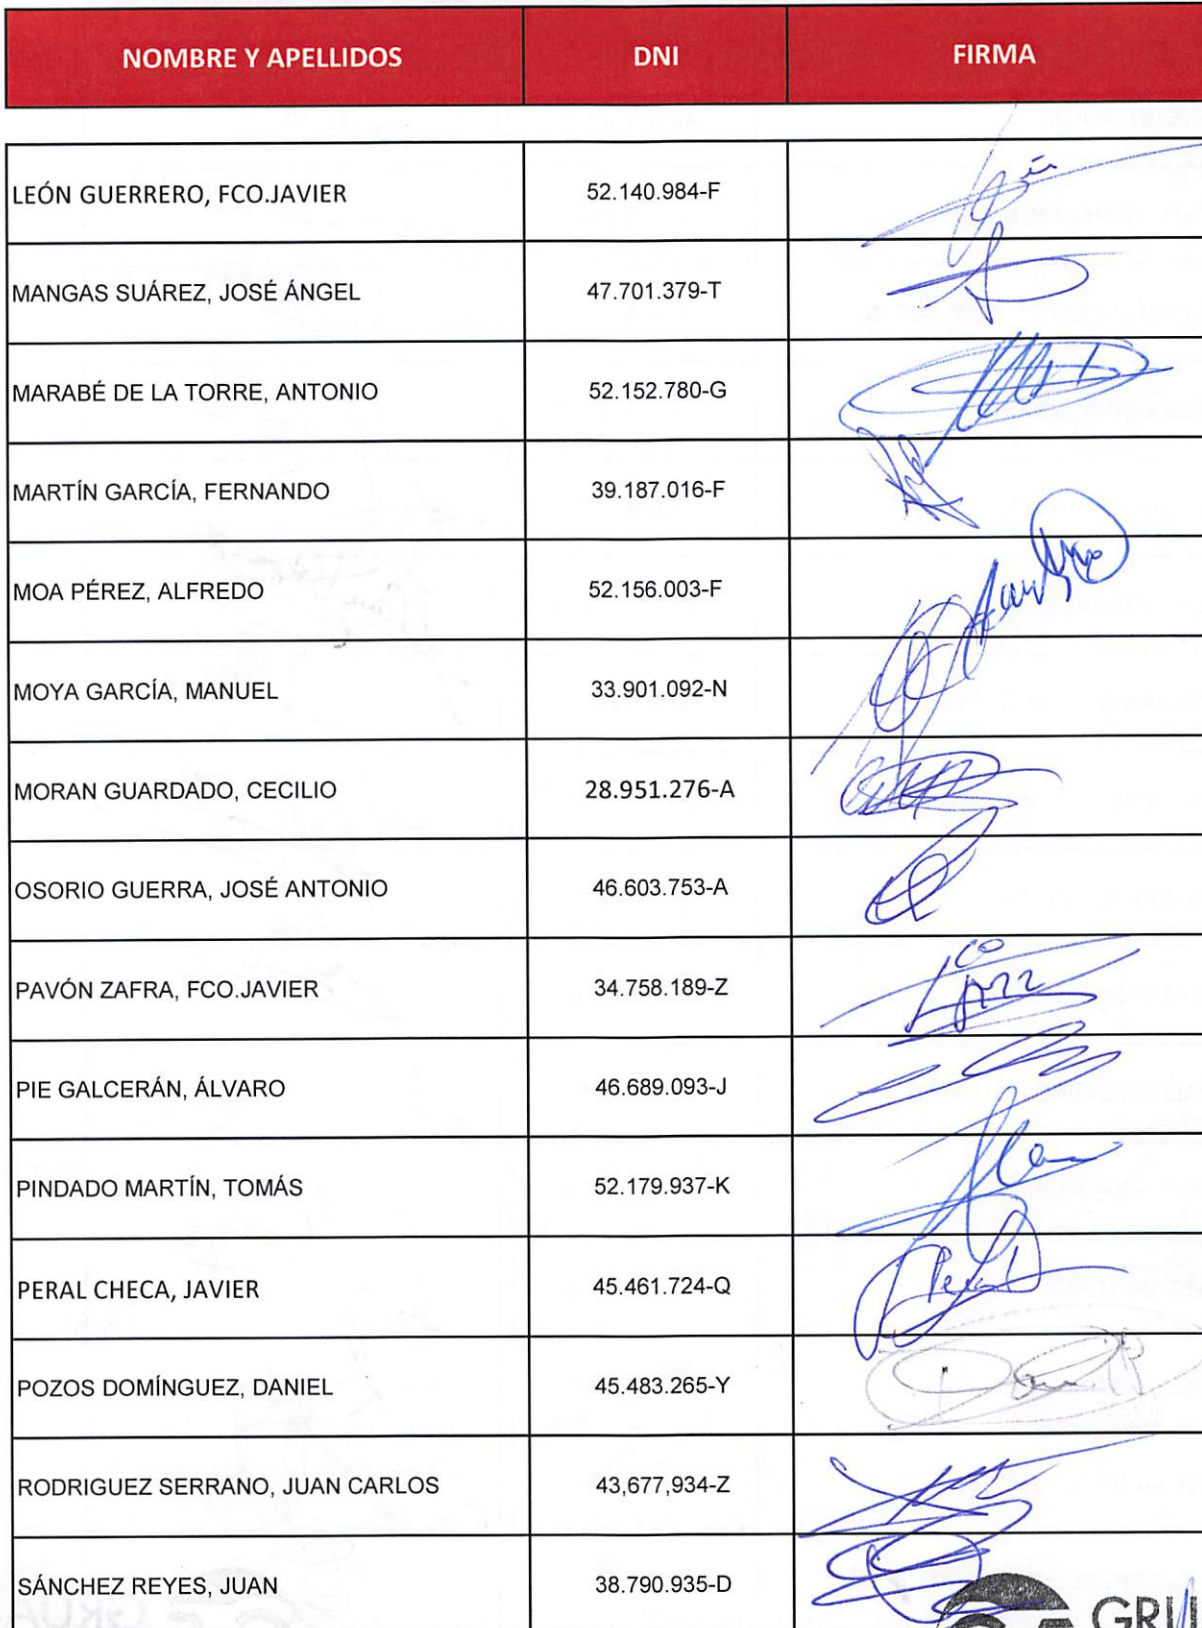 NOMBRE Y APELLIDOS DNI FIRMA
LEÓN GUERRERO, FCO.JAVIER 52.140.984-F
MANGAS SUÁREZ, JOSÉ ÁNGEL 47.701.379-T
MARABÉ DE LA TORRE, ANTONIO 52.152.780-G
MARTÍN GARCÍA, FERNANDO 39.187.016-F
MOA PÉREZ, ALFREDO 52.156.003-F
MOYA GARCÍA, MANUEL 33.901.092-N
MORAN GUARDADO, CECILIO 28.951.276-A
OSORIO GUERRA, JOSÉ ANTONIO 46.603.753-A
PAVÓN ZAFRA, FCO.JAVIER 34.758.189-Z
PIE GALCERÁN, ÁLVARO 46.689.093-J
PINDADO MARTÍN, TOMÁS 52.179.937-K
PERAL CHECA, JAVIER 45.461.724-Q
POZOS DOMÍNGUEZ, DANIEL 45.483.265-Y
RODRIGUEZ SERRANO, JUAN CARLOS 43,677,934-Z
SÁNCHEZ REYES, JUAN 38.790.935-D